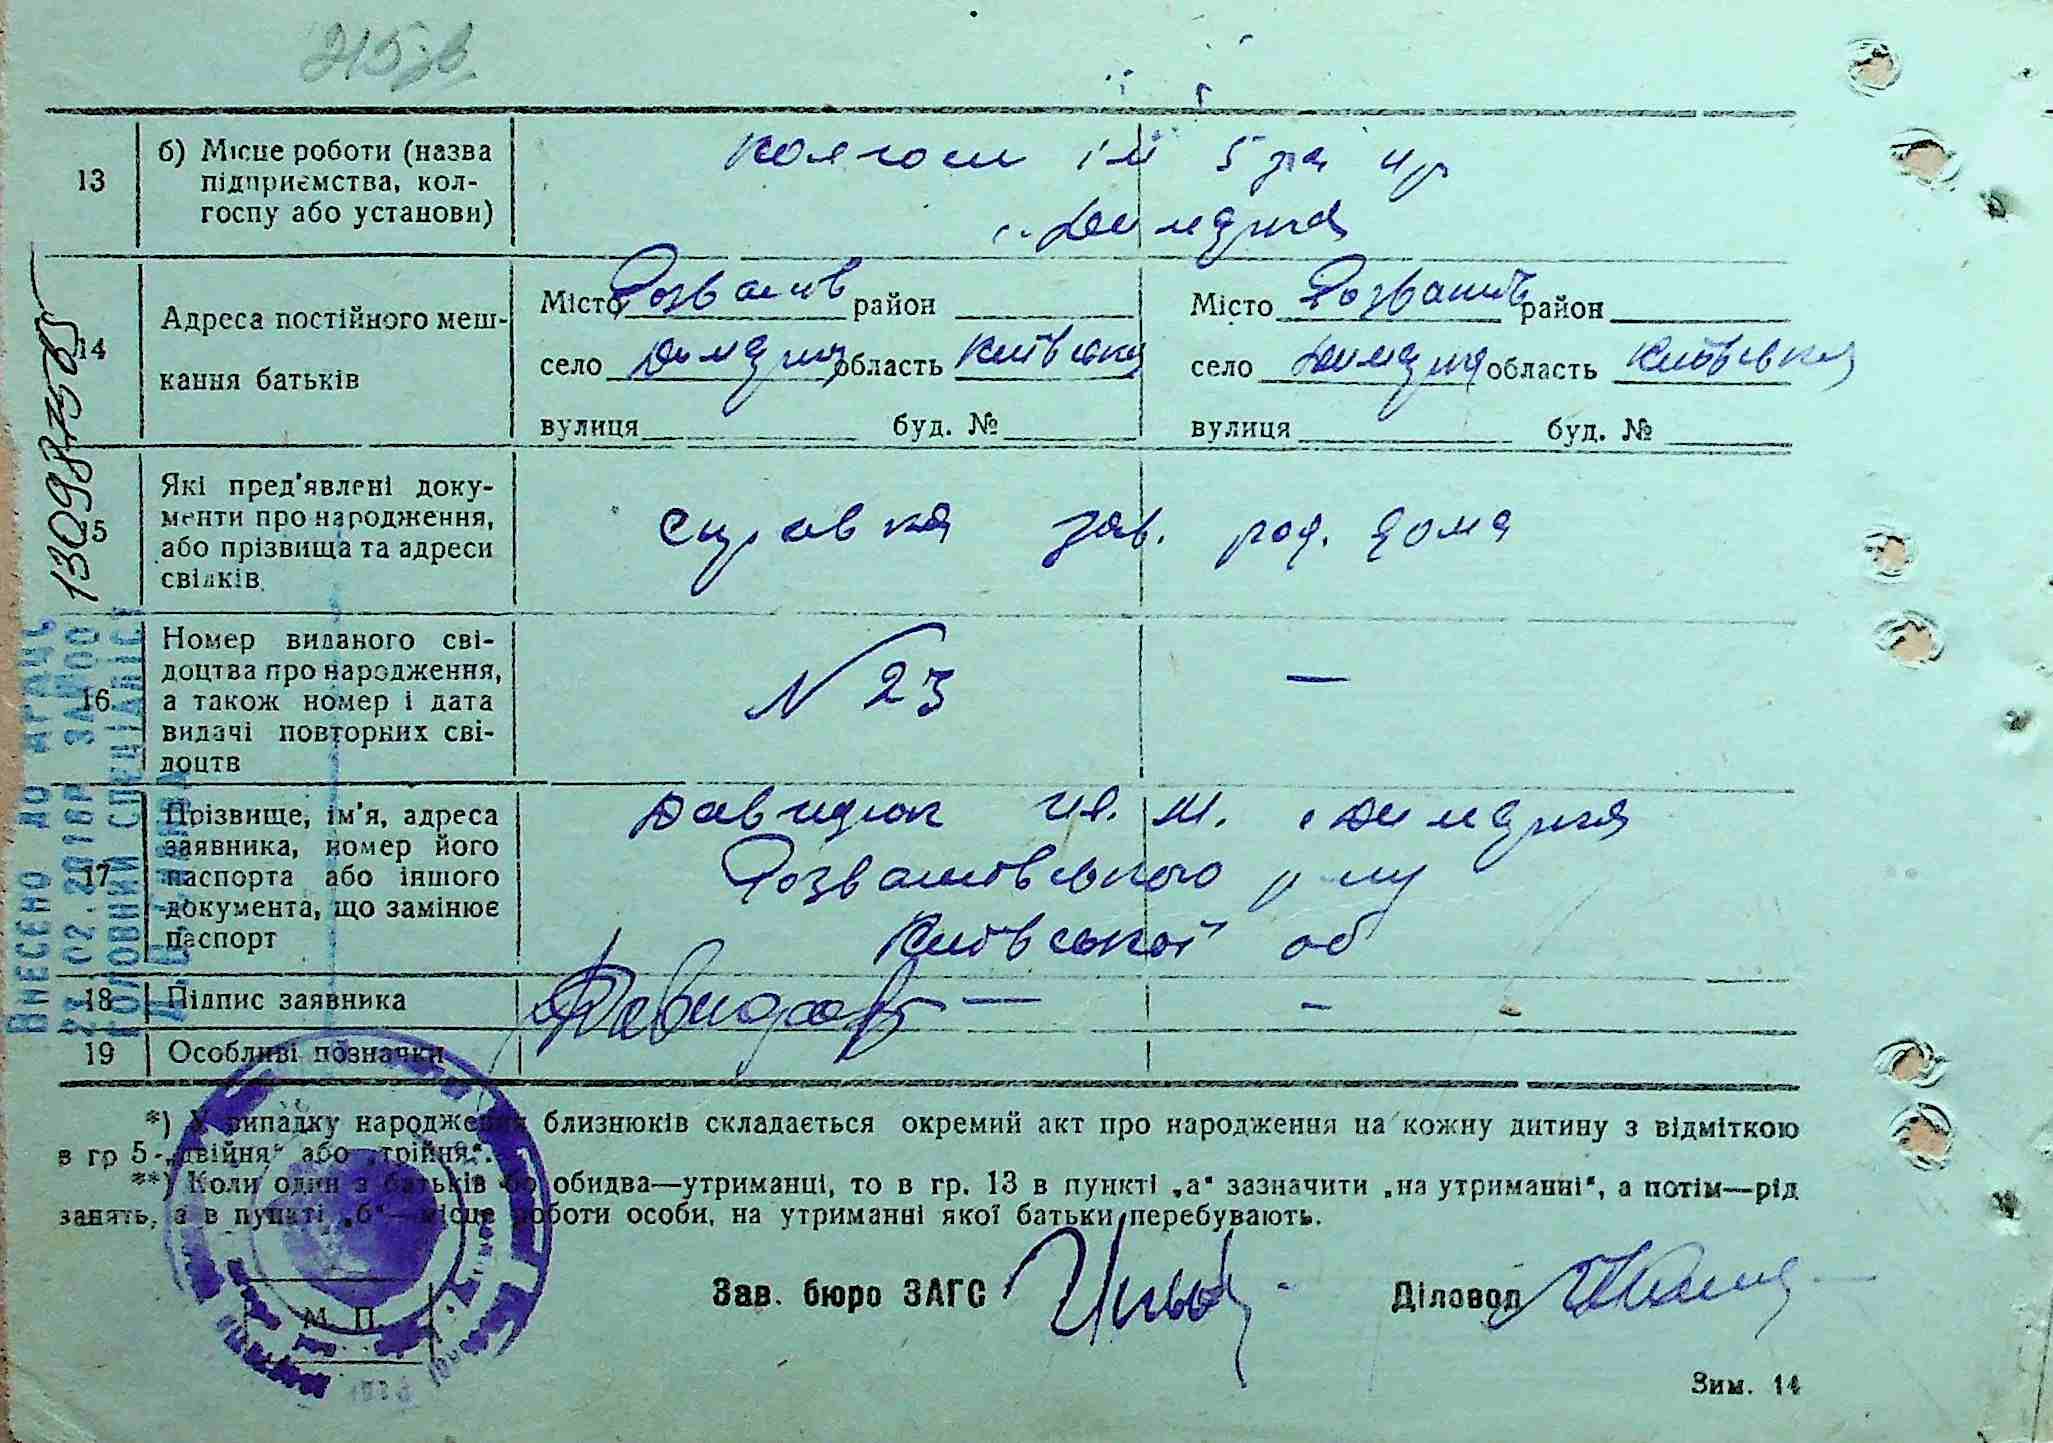 13
б) Місце роботи (назва
підприємства, кол-
госпу або установи)
колгосп ім 5 ра
14
Адреса постійного меш-
кання батьків
Місто Розважів район
село область Київська
вулиця буд. №
Місто Розважів район
село область Київська
вулиця буд. №
15
Які пред'явлені доку-
менти про народження,
або прізвища та адреси
свідків.
справка зав. род. дома
16
Номер виданого сві-
доцтва про народження,
а також номер і дата
видачі повторних сві-
доцтв
N 23 —
17
Прізвище, ім'я, адреса
заявника, номер його
паспорта або іншого
документа, що замінює
паспорт
Давидюк Ів. М.
Розважівського р-ну
Київської об
18
Підпис заявника
— —
19
Особливі позначки
*) У випадку народження близнюків складається окремий акт про народження на кожну дитину з відміткою
в гр 5-„двійня" або „трійня".
**) Коли один з батьків або обидва—утриманці, то в гр. 13 в пункті „а" зазначити „на утриманні", а потім—рід
занять, а в пункті „б"—місце роботи особи, на утриманні якої батьки перебувають.
М. П.
Зав. бюро ЗАГС
Діловод
Зим. 14
ВНЕСЕНО ДО ДРАЦС
ГОЛОВНИЙ СПЕЦІАЛІСТ